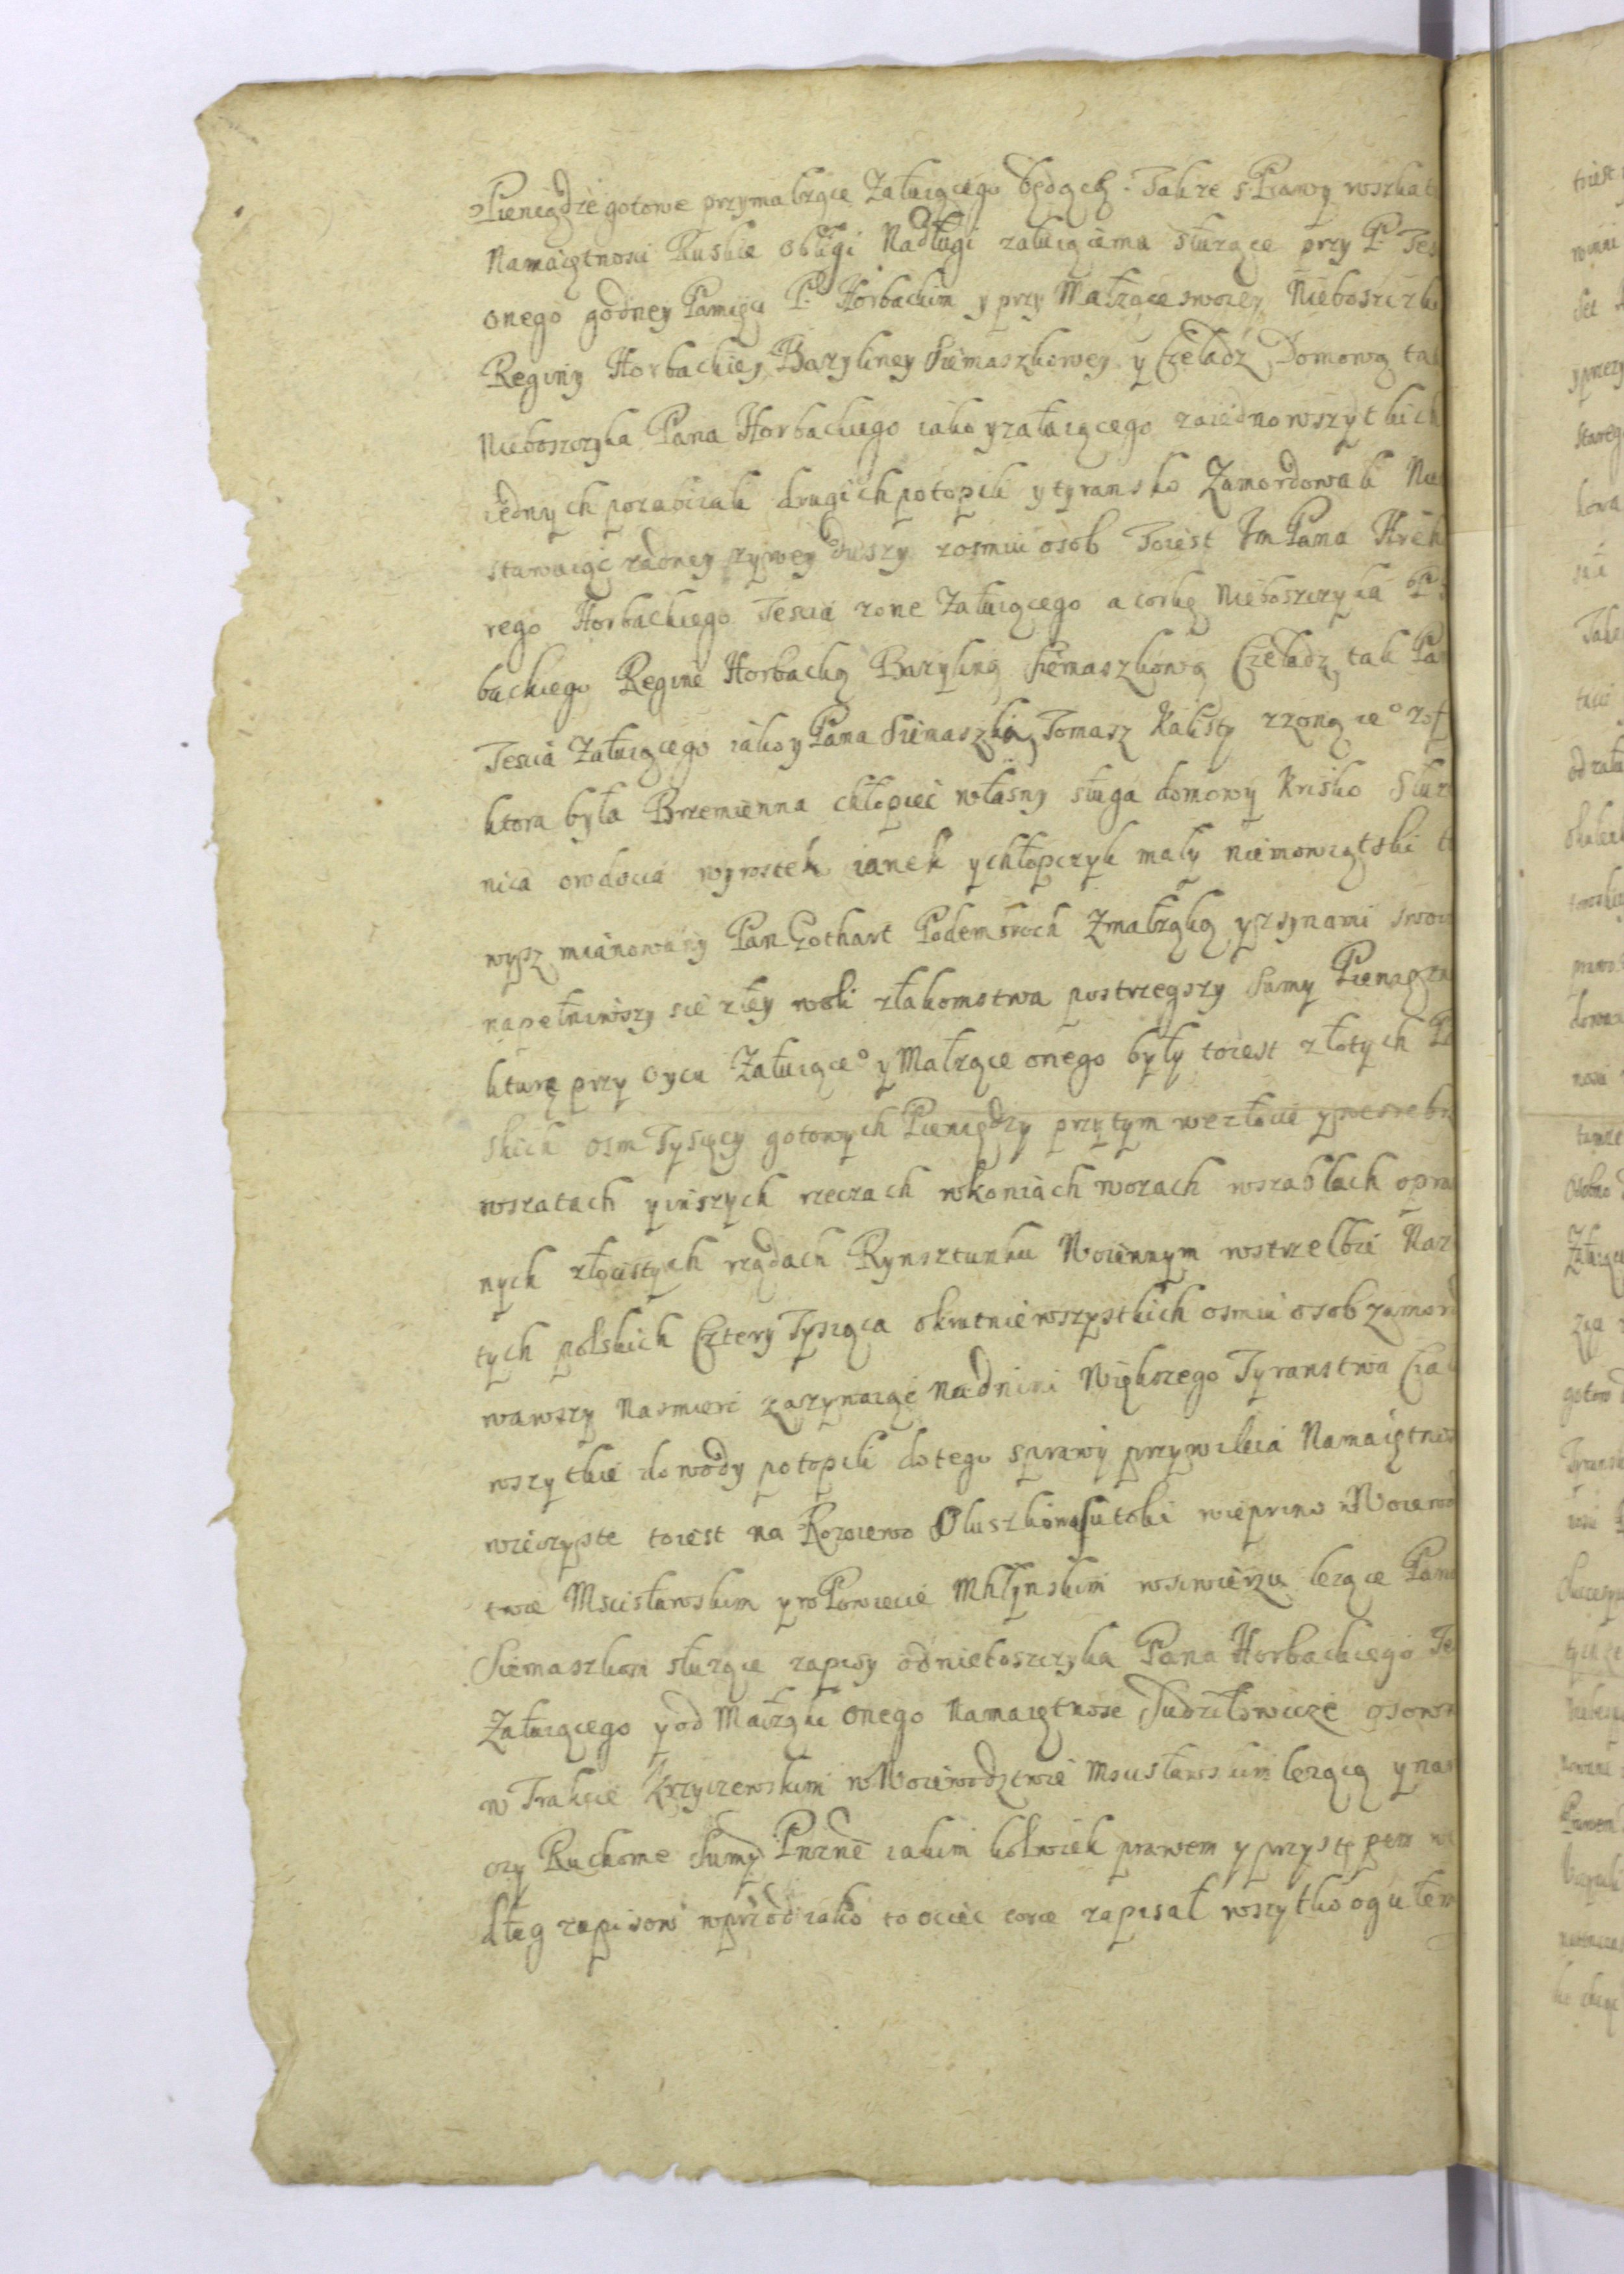 Pieniądze gotowe przy małżące Załuiącego będących. Takze sPrawy wszkat
Namaiętnosci Ruskie obligi Nadługi załuiącemu służące przy P. Tes
onego godney Pamięci P. Horbackim y przy Małzące swoiey Nieboszczki
Reginy Horbackiey Bazyliney Siemaszkowey y Czeladz Domową tak
Nieboszczyka Pana Horbackiego iako y załuiącego zaiedno wszytkich
iednych pozabiiali drugich potopili y tyransko Zamordowali Nie
stawaiąc zadney zywey duszy zosmiu osob Toiest Jm Pana Hreh
rego Horbackiego Tescia zone Załuiącego a corkę Nieboszczyka P.
backiego Reginę Horbacką Bazyliną Siemaszkową Czeladz tak Pan
Tescia Załuiącego iako y Pana Siemaszka, Tomasz Kalisty zzoną ieº Zof
ktora była Brzemienna chłopiec własny sługa domowy Krisko Służ
nica owdocia wyrostek ianek y chłopczyk mały niemowiątski
wysz mianowany Pan Gothart Podembroch Zmałząką y zsynami swoi
napełniwszy sie złey woli złakomstwa postrzegszy Sumy Pienięzn
kturę przy oycu Załuiąceº y Małzące onego były toiest złotych P
skich osm Tysięcy gotowych Pieniędzy przytym we złocie y we srebr
wszatach y inszych rzeczach wkoniach wozach wszablach opra
nych złocistych rządach Rynsztunku Woiennym wstrzelbie Naz
tych polskich Cztery Tysiąca okrutnie wszystkich osmiu osob zamord
wawszy Nasmierc zazynaiąc nadnimi Większego Tyranstwa Cia
wszytkie dowody potopili dotego sprawy przywileia Namaiętnos
wieczyste toiest na Rozoiewo Oluszkowo sutoki wieprino w Woiewo
twie Mscisławskim y w Powiecie Mhlynskim wsiwierzu lezące Pan
Siemaszkom służące zapisy od nieboszczyka Pana Horbackiego Te
Załuiącego y od Małząki onego Namaiętnose Sudziłowicze osown
w Trakcie Krzyczewskim w Woiewodztwie Mscisławskim lezącą y na
czy Ruchome Sumy Pnzne iakim kolwiek prawem y przystępem
dług zapisow wprzod iako to ociec corce zapisał wszytko ogułem